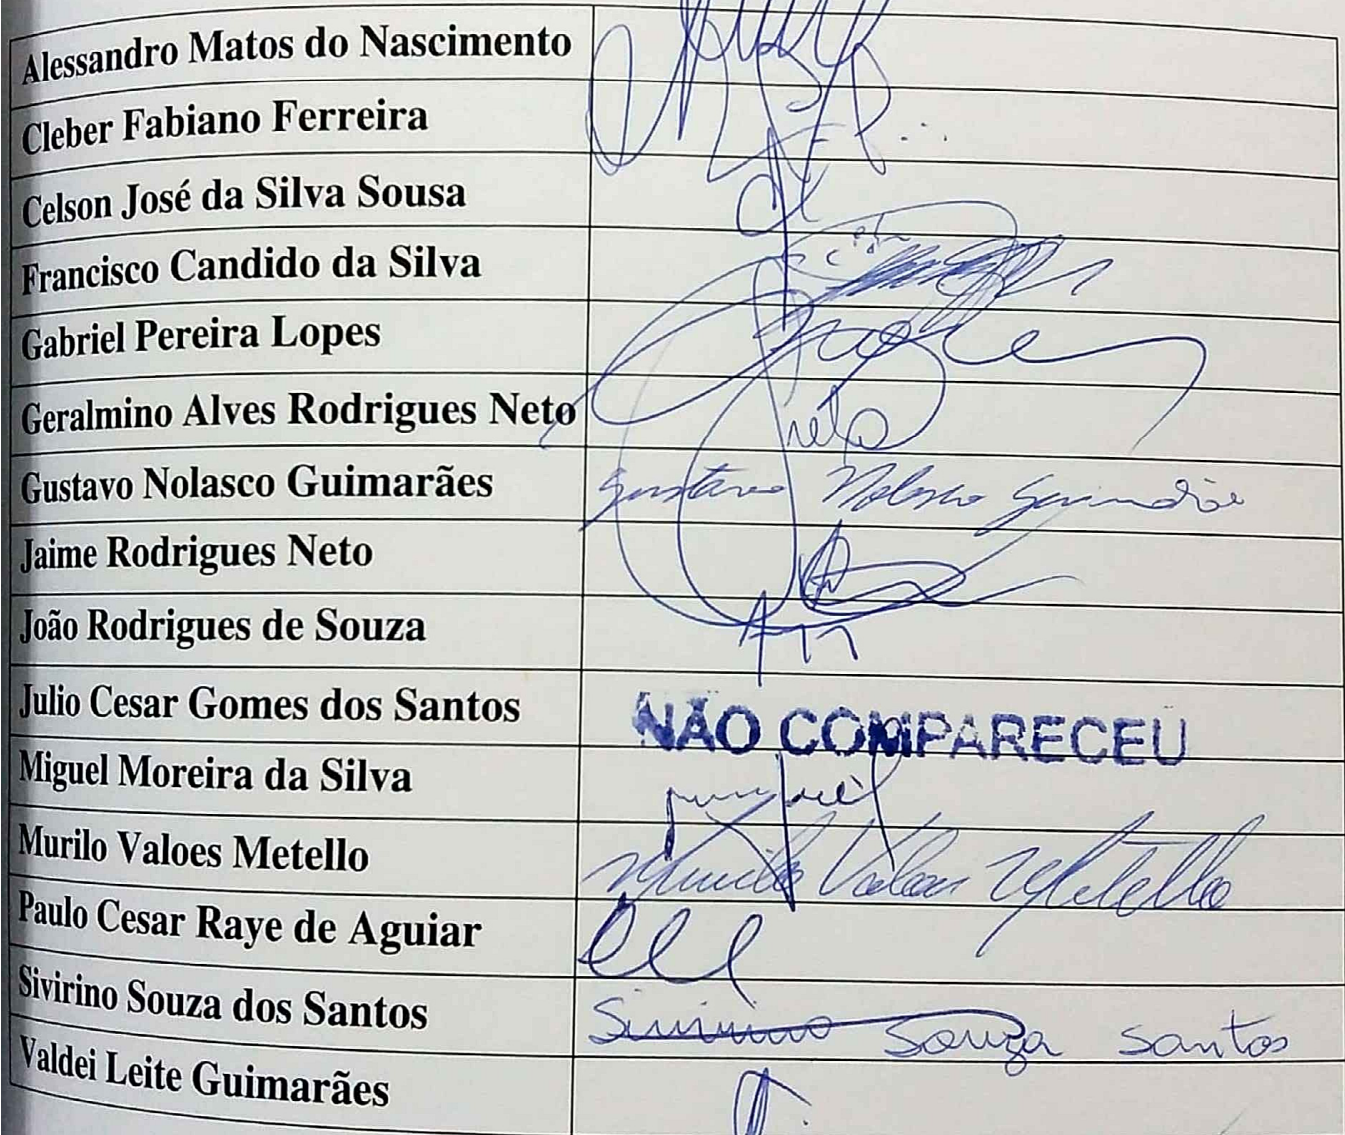 Alessandro Matos do Nascimento
Cleber Fabiano Ferreira
Celson José da Silva Sousa
Francisco Candido da Silva
Gabriel Pereira Lopes
Geralmino Alves Rodrigues Neto
Neto
Gustavo Nolasco Guimarães
Gustavo Nolasco Guimarães
Jaime Rodrigues Neto
João Rodrigues de Souza
Julio Cesar Gomes dos Santos
NÃO COMPARECEU
Miguel Moreira da Silva
Murilo Valoes Metello
Murilo Valoes Metello
Paulo Cesar Raye de Aguiar
Sivirino Souza dos Santos
Souza Santos
Valdei Leite Guimarães